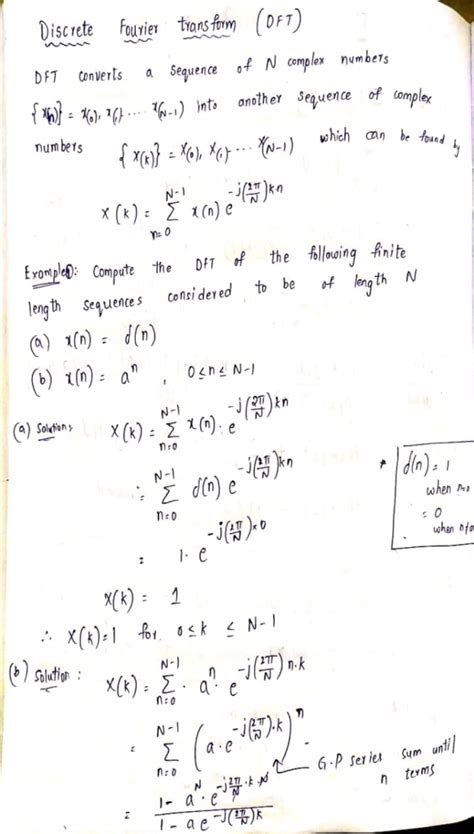 Discrete Fourier transform (DFT)
DFT converts a sequence of N complex numbers
{x(n)} = x(0), x(1) ---- x(N-1) into another sequence of complex
numbers {x(k)} = x(0), x(1) ---- x(N-1) which can be found by
x(k) = Σ_{n=0}^{N-1} x(n) e^{-j(2π/N)kn}
Example①: Compute the DFT of the following finite
length sequences considered to be of length N
(a) x(n) = δ(n)
(b) x(n) = a^n , 0≤n≤ N-1
(a) Solution: X(k) = Σ_{n=0}^{N-1} x(n)· e^{-j(2π/N)kn}
= Σ_{n=0}^{N-1} δ(n) e^{-j(2π/N)kn}
* δ(n) = 1
when n=0
= 0
when n≠0
= 1· e^{-j(2π/N)×0}
X(k) = 1
∴ X(k)=1 for 0≤k ≤ N-1
(b) Solution : X(k) = Σ_{n=0}^{N-1} · a^n· e^{-j(2π/N)n·k}
= Σ_{n=0}^{N-1} (a·e^{-j(2π/N)·k})^n
G.P series sum until
n terms
= 1 - a^N· e^{-j2π/N·k·N} / 1 - a e^{-j(2π/N)k}